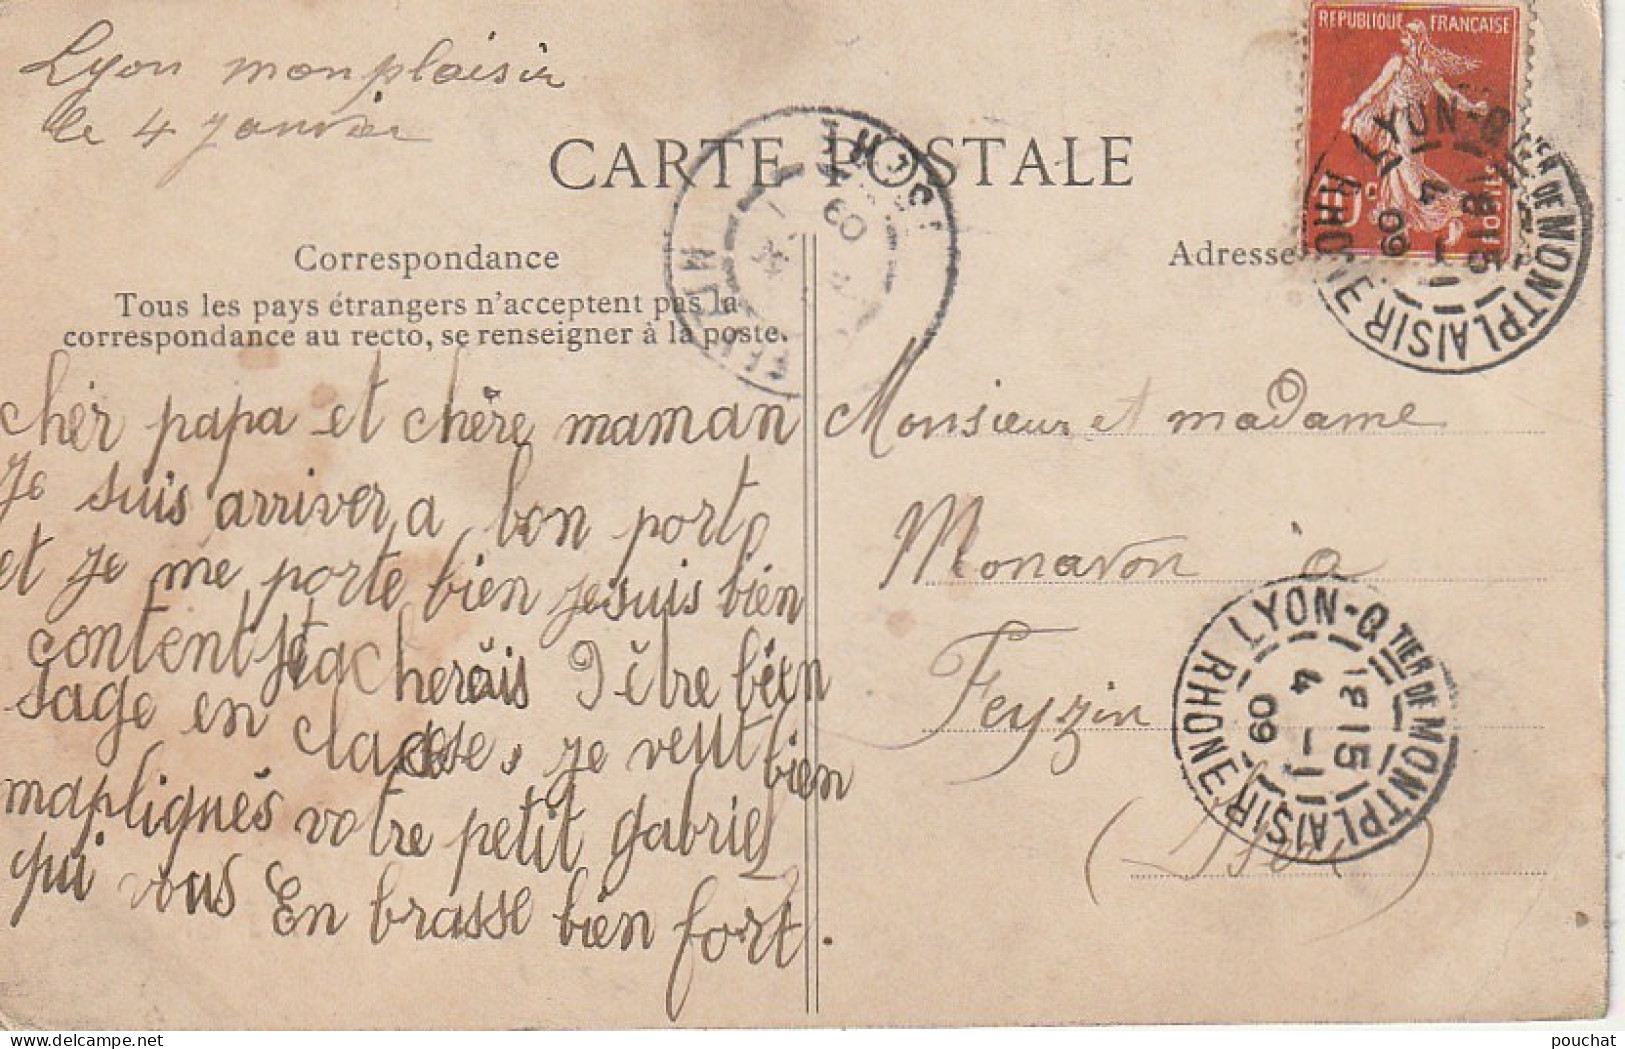 Lyon monplaisir
le 4 Janvier
CARTE POSTALE
REPUBLIQUE FRANÇAISE
10c
POSTES
LYON-QTIER DE MONTPLAISIR
RHONE
18 15
4 - 1
09
Correspondance
Tous les pays étrangers n'acceptent pas la
correspondance au recto, se renseigner à la poste.
Adresse
cher papa et chère maman
Je suis arriver a bon port
et je me porte bien je suis bien
content je tacherèis d être bien
sage en classe, je veut bien
mapliqués votre petit gabriel
qui vous En brasse bien fort.
Monsieur et madame
Monavon à
Feyzin
(Isère)
LYON-QTIER DE MONTPLAISIR
RHONE
18 15
4 - 1
09
delcampe.net
pouchat